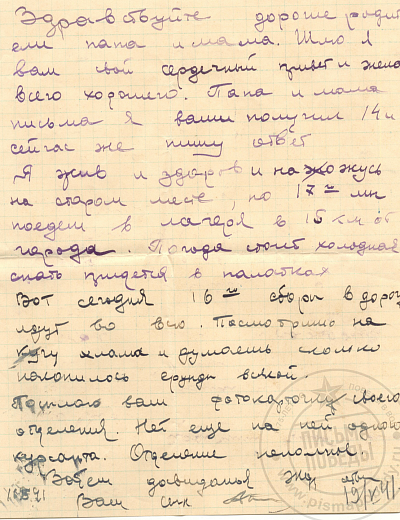 Здравствуйте дорогие родит
ели папа и мама. Шлю я
вам свой сердечный привет и жела
всего хорошего. Папа и мама
письма я ваши получил 14 и
сейчас же пишу ответ
Я жив и здоров и нахожусь
на старом месте, но 17го мы
поедем в лагеря в 15 км от
города. Погода стоит холодная
спать придется в палатках
Вот сегодня 16го сборы в дорогу
идут во всю. Посмотришь на
кучу хлама и думаешь сколько
накопилось ерунды всякой.
Посылаю вам фотокарточку своего
отделения. Нет еще на ней одного
курсанта. Отделение неполное.
Затем до свиданья жду отв
Ваш сын
ПИСЬМА ПОБЕДЫ
www.pisma